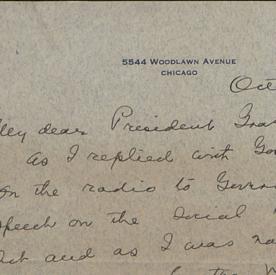 5544 WOODLAWN AVENUE
CHICAGO
Oct
My dear President Gra
as I replied with Gov
on the radio to Govern
speech on the Social
Act and as I was